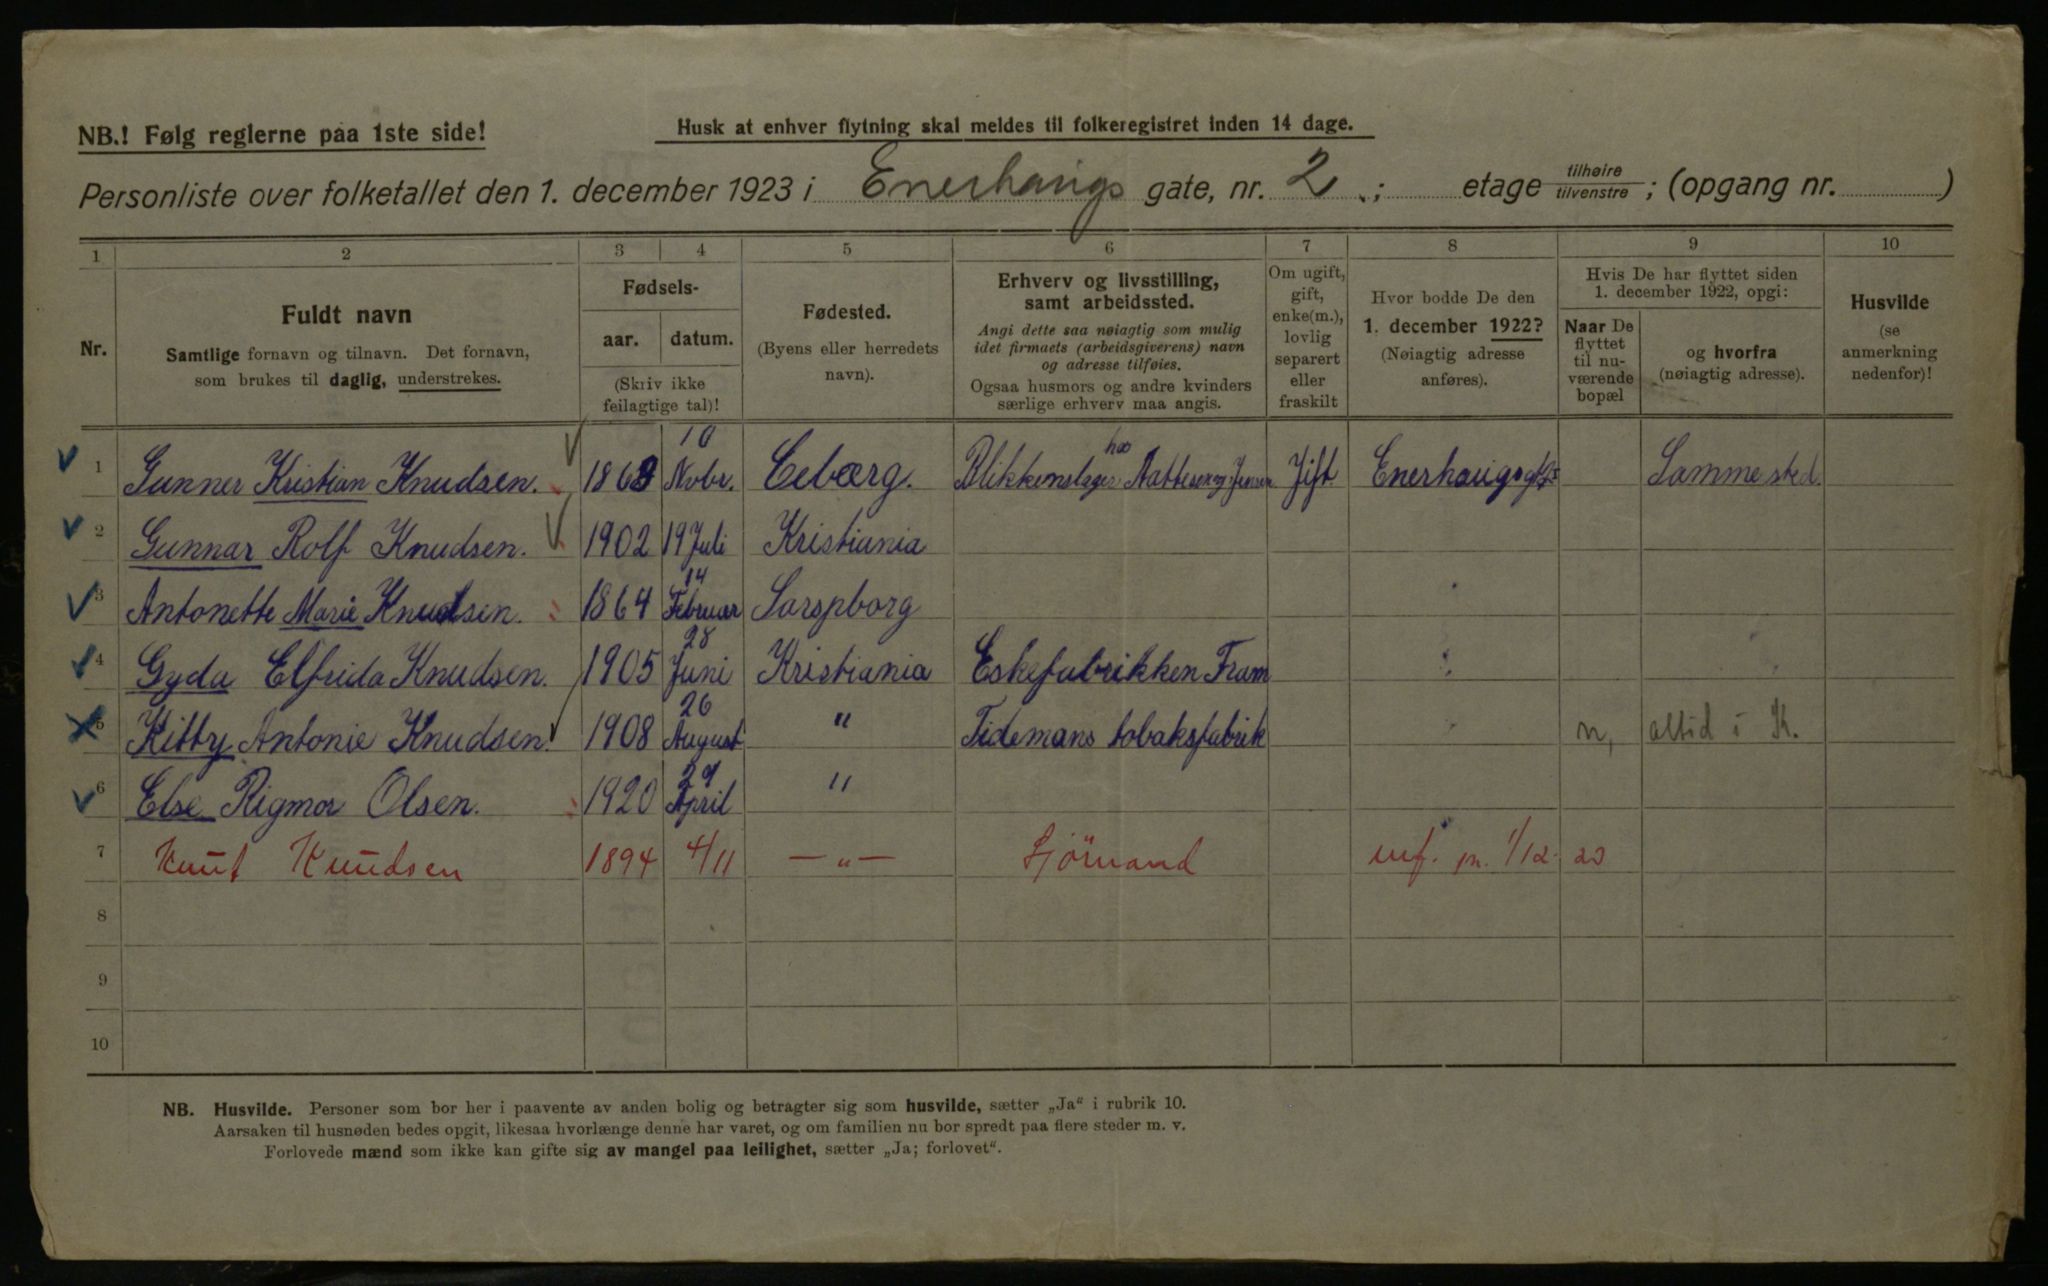 NB.! Følg reglerne paa 1ste side!
Husk at enhver flytning skal meldes til folkeregistret inden 14 dage.
Personliste over folketallet den 1. december 1923 i Enerhaugs gate, nr. 2 ; etage tilhøire / tilvenstre ; (opgang nr. )
1 2 3 4 5 6 7 8 9 10
Nr.
Fuldt navn
Samtlige fornavn og tilnavn. Det fornavn,
som brukes til daglig, understrekes.
Fødsels-
aar. datum.
(Skriv ikke
feilagtige tal)!
Fødested.
(Byens eller herredets
navn).
Erhverv og livsstilling,
samt arbeidssted.
Angi dette saa nøiagtig som mulig
idet firmaets (arbeidsgiverens) navn
og adresse tilføies.
Ogsaa husmors og andre kvinders
særlige erhverv maa angis.
Om ugift,
gift,
enke(m.),
lovlig
separert
eller
fraskilt
Hvor bodde De den
1. december 1922?
(Nøiagtig adresse
anføres).
Hvis De har flyttet siden
1. december 1922, opgi:
Naar De
flyttet
til nu-
værende
bopæl
og hvorfra
(nøiagtig adresse).
Husvilde
(se
anmerkning
nedenfor)!
1 Gunner Kristian Knudsen. 1868 10 Novbr. Ceberg. Blikkenslager hos Jensen Gift. Enerhaugsgt Samme sted.
2 Gunnar Rolf Knudsen. 1902 19 Juli Kristiania
3 Antonette Marie Knudsen. 1864 14 Februar Sarspborg
4 Gyda Elfrida Knudsen. 1905 28 Juni Kristiania Eskefabrikken Fram
5 Kitty Antonie Knudsen. 1908 26 August " Tidemans tobaksfabrik n, altid i K.
6 Else Rigmor Olsen. 1920 29 April "
7 Knut Knudsen 1894 4/11 — " — Sjömand inf. pr. 1/12. 23
8
9
10
NB. Husvilde. Personer som bor her i paavente av anden bolig og betragter sig som husvilde, sætter „Ja“ i rubrik 10.
Aarsaken til husnøden bedes opgit, likesaa hvorlænge denne har varet, og om familien nu bor spredt paa flere steder m. v.
Forlovede mænd som ikke kan gifte sig av mangel paa leilighet, sætter „Ja; forlovet“.